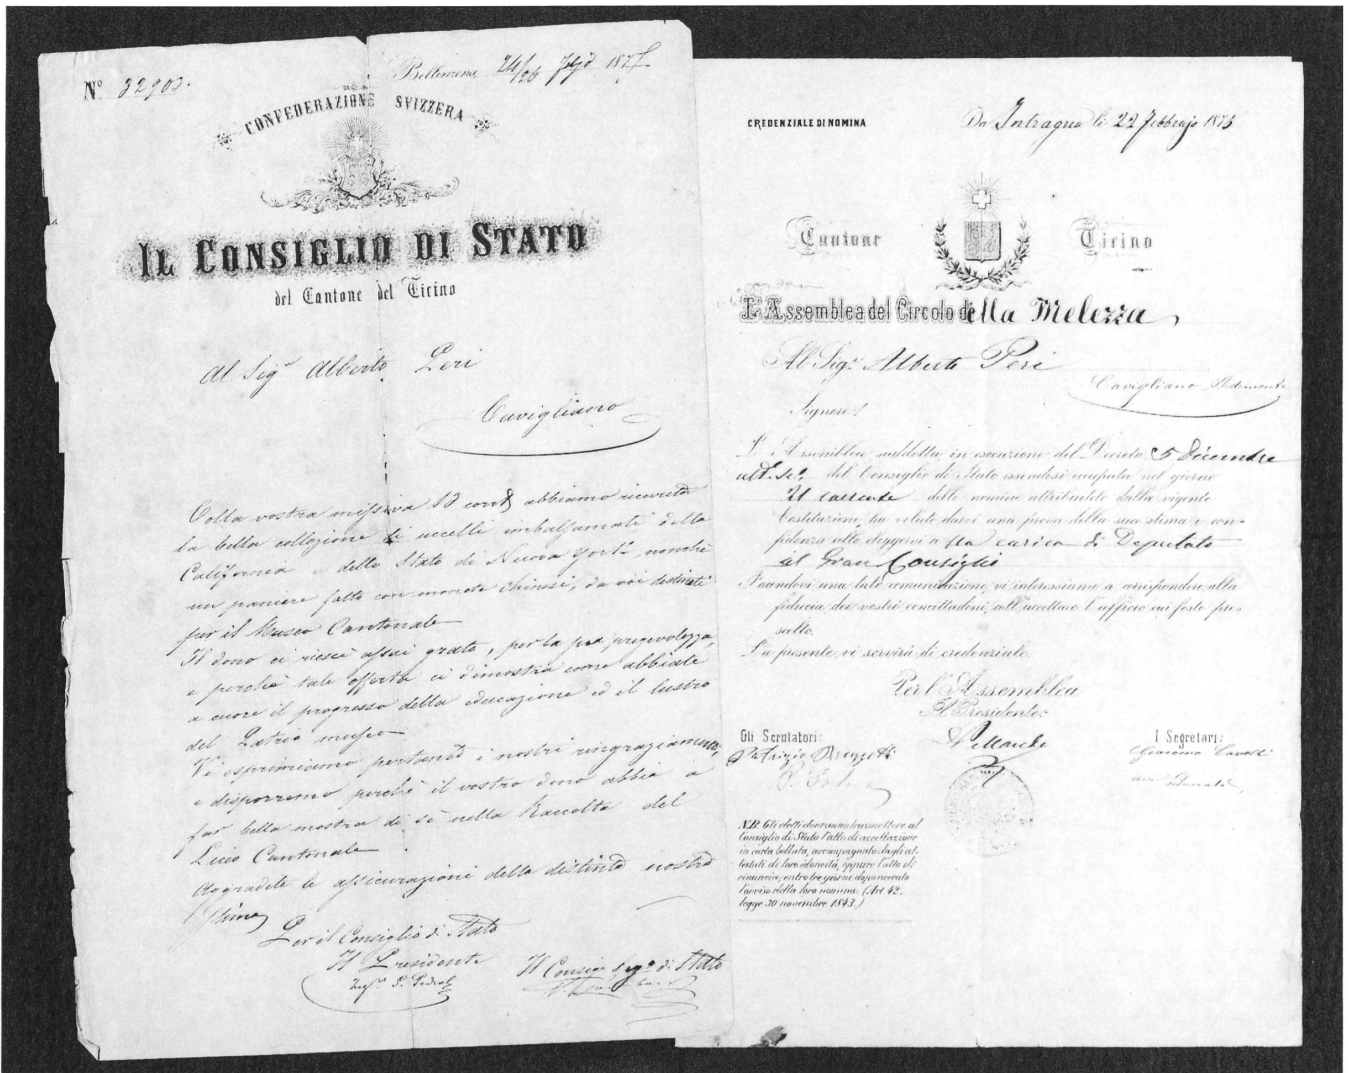 Nº 32903.
Bellinzona, 24/26
CONFEDERAZIONE SVIZZERA
IL CONSIGLIO DI STATO
del Cantone del Ticino
Al Sigr Alberto Peri
Cavigliano
Colla vostra missiva 13 corrte abbiamo ricevuto
la bella collezione di uccelli imbalsamati della
California e dello Stato di Nuova York, nonchè
un paniere fatto con monete chinesi, da voi destinati
per il Museo Cantonale
Il dono ci riescì assai grato, per la sua pregevolezza,
e perchè tale offerta ci dimostra come abbiate
a cuore il progresso della educazione ed il lustro
del Patrio museo
Vi esprimiamo pertanto i nostri ringraziamenti,
e disporremo perchè il vostro dono abbia a
far bella mostra di sè nella Raccolta del
Liceo Cantonale
Aggradite le assicurazioni della distinta nostra
stima
Per il Consiglio di Stato
Il Presidente
Il Consigr Segro di Stato
CREDENZIALE DI NOMINA
Da Intragna li 22 Febbrajo 1875
Cantone Ticino
L'Assemblea del Circolo della Melezza,
Al Sigr Alberto Peri
Cavigliano Pedemonte
Signore!
L'Assemblea suddetta, in esecuzione del Decreto 5 Dicembre
del Consiglio di Stato essendosi occupata nel giorno
21 corrente delle nomine attribuitele dalla vigente
Costituzione, ha voluto darvi una prova della sua stima e con-
fidenza allo eleggervi a la carica di Deputato
al Gran Consiglio
Facendovi una tale comunicazione, vi interessiamo a corrispondere alla
fiducia dei vostri concittadini, coll'accettare l'ufficio cui foste pre-
scelto.
La presente vi servirà di credenziale.
Per l'Assemblea
Il Presidente:
Gli Scrutatori:
I Segretari:
Giacomo Cavalli
N.B. Gli eletti dovranno trasmettere al
Consiglio di Stato l'atto di accettazione
in carta bollata, accompagnato dagli at-
testati di loro idoneità, oppure l'atto di
rinuncia, entro tre giorni dopo ricevuto
l'avviso della loro nomina. (Art 42.
legge 30 novembre 1843.)